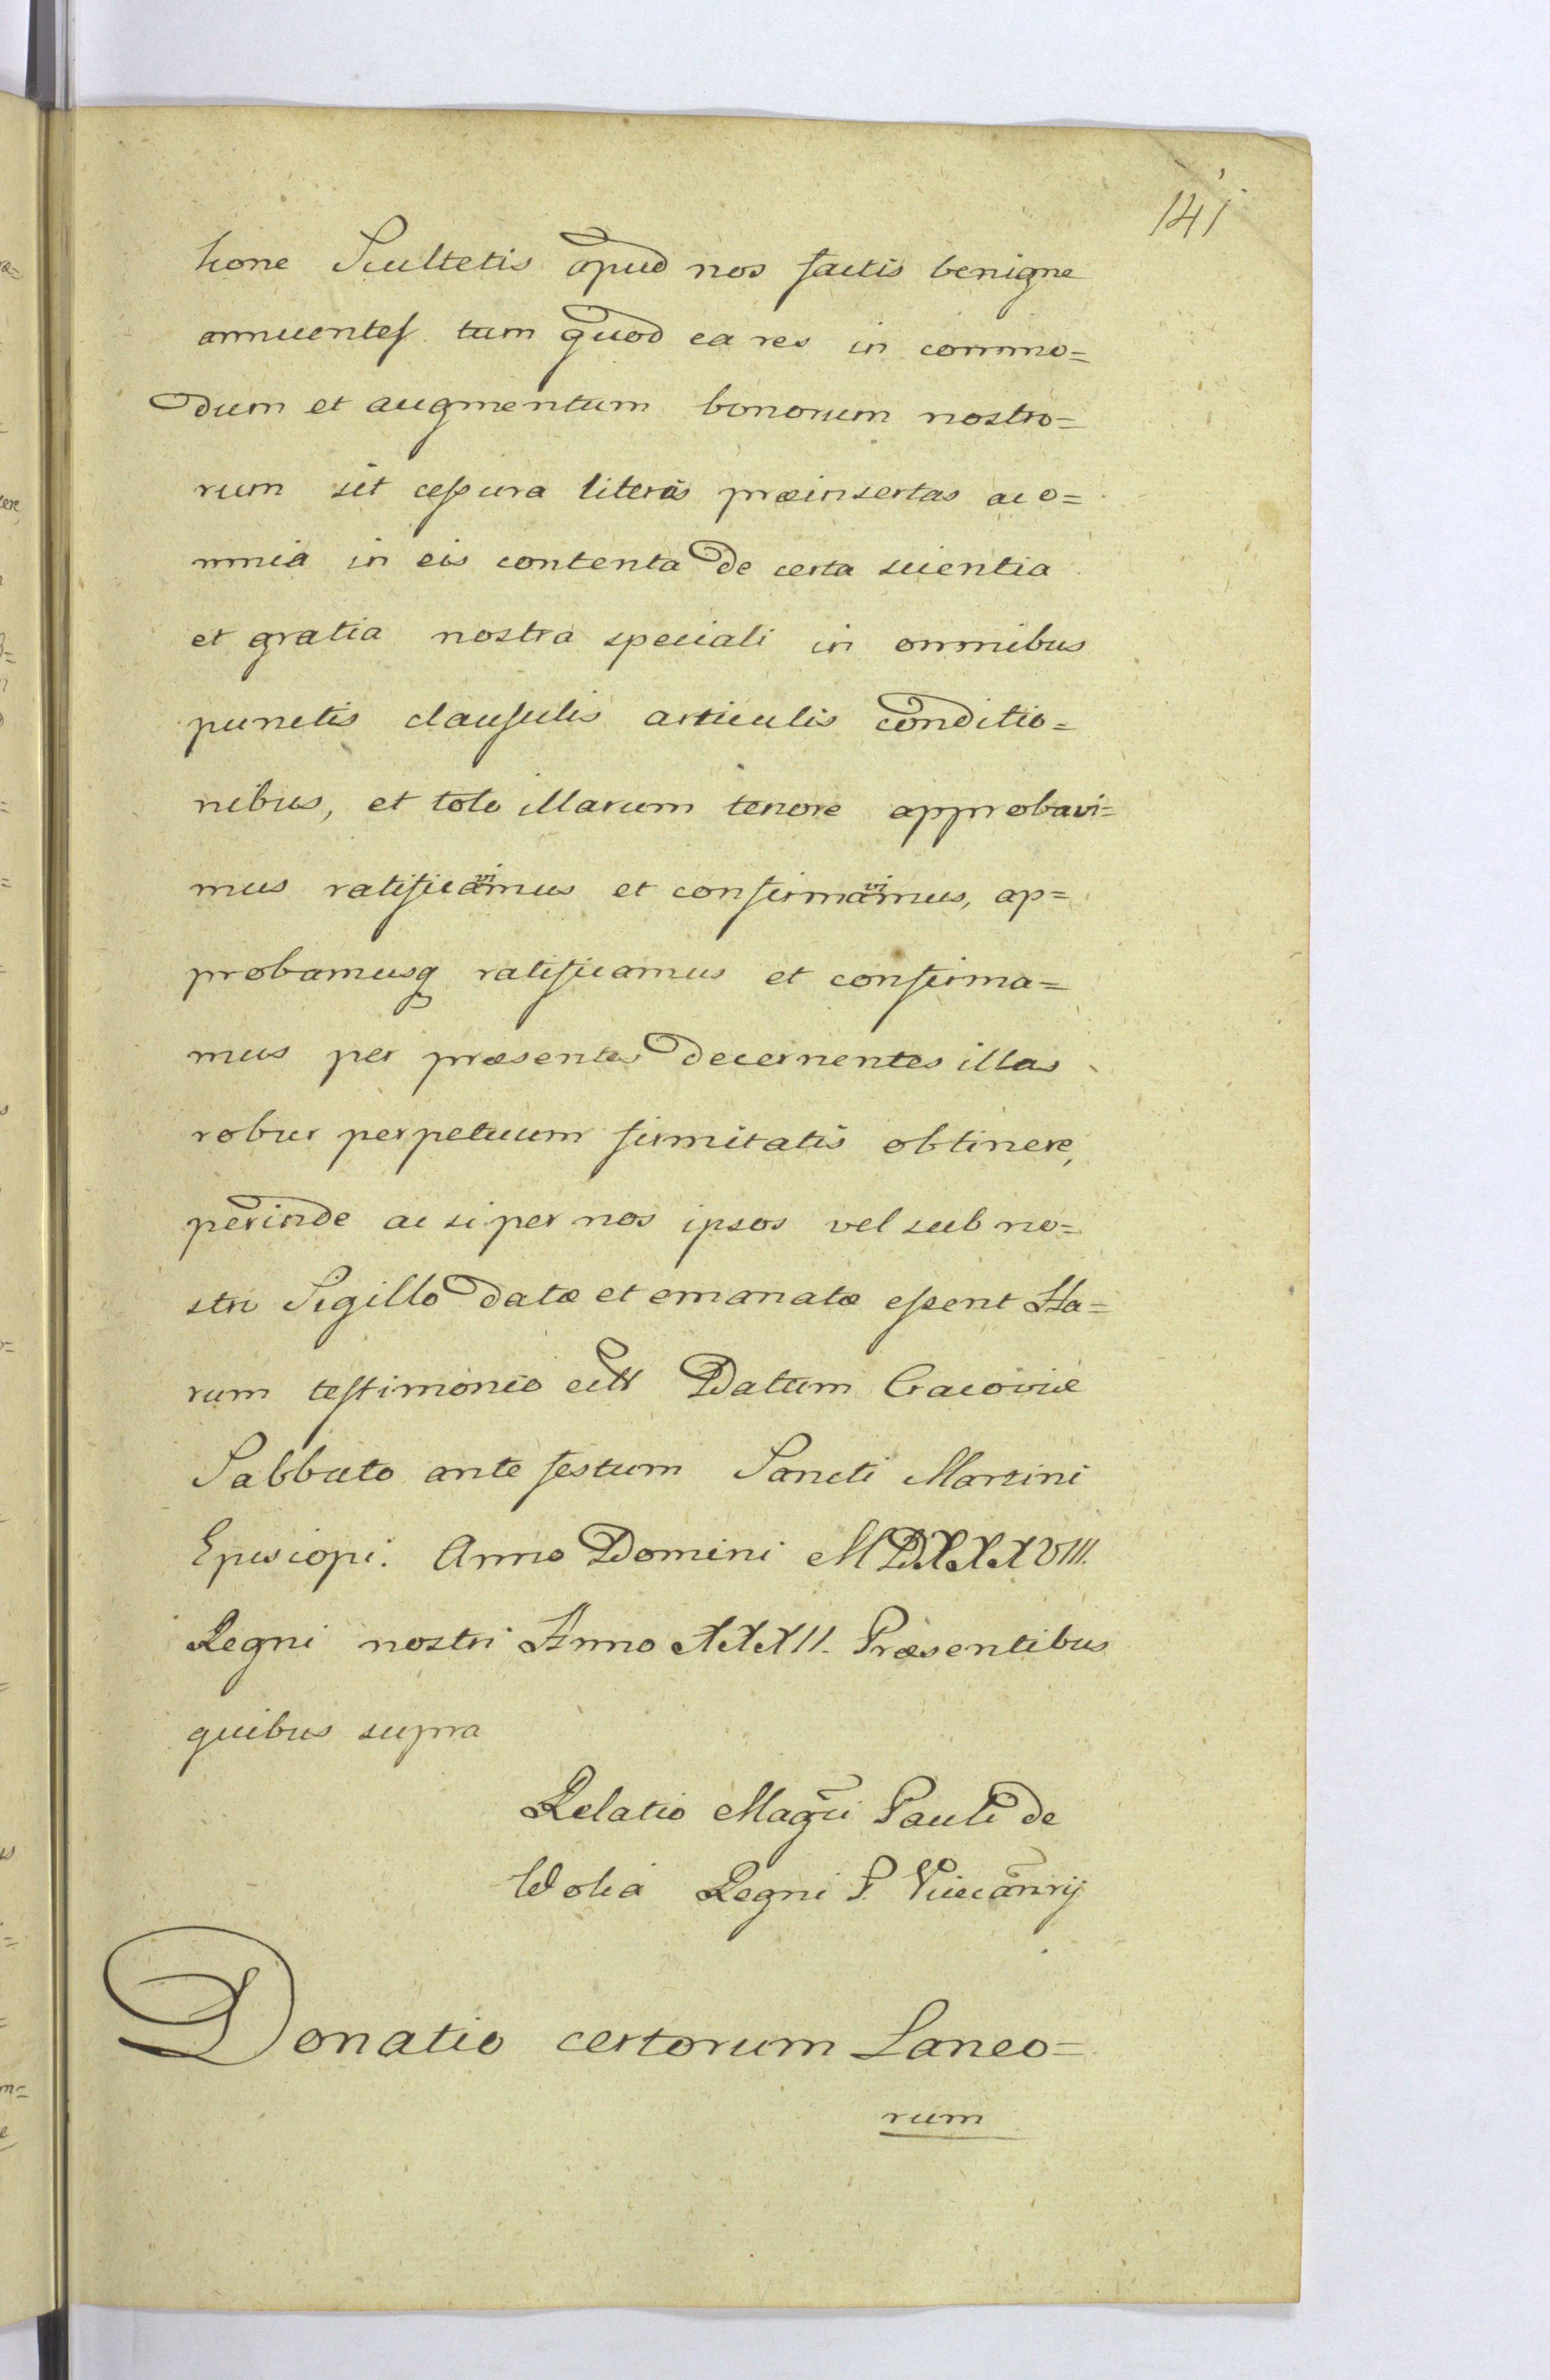 141
tione Scultetis apud nos factis benigne
annuentes tum quod ea res in commo=
dum et augmentum bonorum nostro=
rum sit cessura literas præinsertas ac o=
mnia in eis contenta de certa scientia
et gratia nostra speciali in omnibus
punctis clausulis articulis conditio=
nibus, et toto illarum tenore approbavi=
mus ratificavimus et confirmavimus, ap=
probamusq ratificamus et confirma=
mus per præsentes decernentes illas
robur perpetuum firmitatis obtinere,
perinde ac si per nos ipsos vel sub no=
stri Sigillo datæ et emanatæ essent Ha=
rum testimonio Datum Cracoviæ
Sabbato ante festum Sancti Martini
Episcopi. Anno Domini MDXXXVIII.
Regni nostri Anno XXXII. Præsentibus
quibus supra
Relatio Magci Pauli de
Wolia Regni P. Vicecanrij
Donatio certorum Laneo=
rum